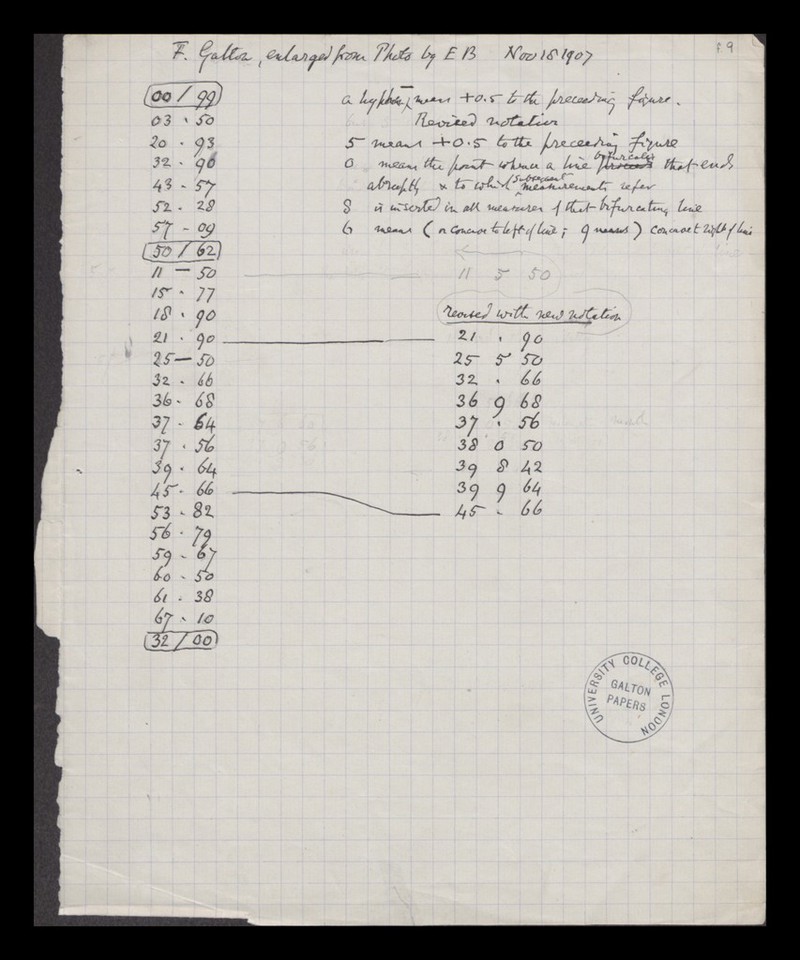 F. Galton, enlarged from Photo by E B Nov 18 1907
f 9
00 / 99
03 . 50
20 . 93
32 . 96
43 - 57
52 . 28
57 - 09
50 / 62
11 — 50
15 . 77
18 . 90
21 . 90
25 — 50
32 . 66
36 . 68
37 . 64
37 . 56
39 . 64
45 . 66
53 . 82
56 . 79
59 . 67
60 . 50
61 . 38
67 . 10
32 / 00
a hyphen, — means +0.5 to the preceding figure.
Revised notation
5 means +0.5 to the preceding figure
0 means the point whence a line bifurcates that ends
abruptly & to which subsequent measurements refer
8 is inserted in all measures of that bifurcating line
6 means ( or concave to left of line; 9 means ) concave to right of line
11 5 50
revised with new notation
21 . 90
25 5 50
32 . 66
36 9 68
37 . 56
38 0 50
39 8 42
39 9 64
45 . 66
UNIVERSITY COLLEGE LONDON
GALTON
PAPERS